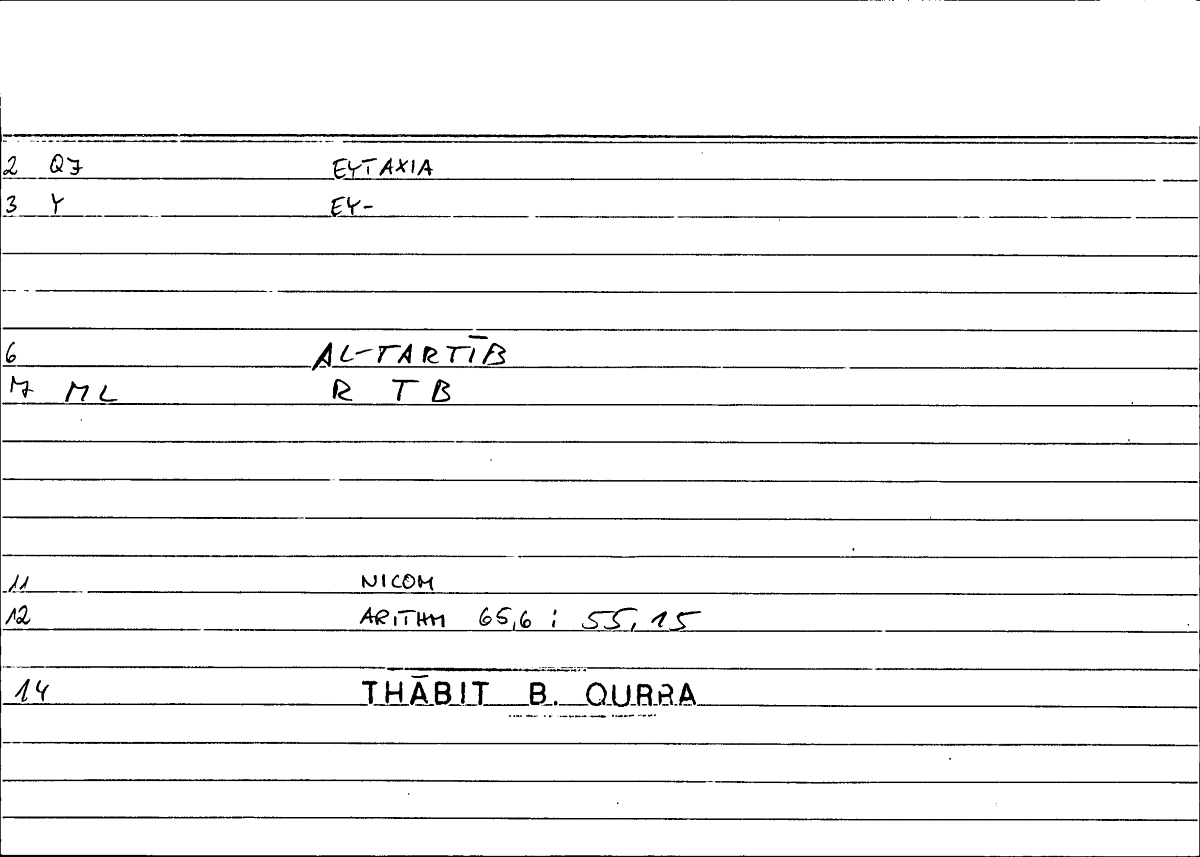 2 QJ EYTAXIA
3 Y EY-
6 AL-TARTĪB
7 ML R T B
11 NICOM
12 ARITHM 65,6 ; 55,15
14 THĀBIT B. QURRA